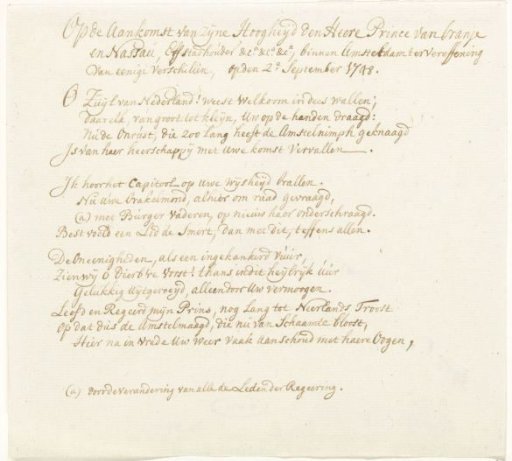 Op de Aankomst van Zyne Hoogheyd den Heere Prince van Oranje
en Nassau, Erfstadhouder &c.a &c.a &c.a, binnen Amsterdam ter vereffening
van eenige verschillen, op den 2.e September 1748.
O Zuyl van Nederland! weest welkoom in dees wallen;
Daar elk, van groot tot kleyn, Uw op de handen draagd:
Nu de Onrust, die zoo lang heeft de Amstelnimph geknaagd
Is van haer heerschappy met Uwe komst vervallen.
Ik hoor het Capitool op Uwe wysheyd brallen.
Nu uwe Orakelmond, alhier om raad gevraagd,
(a) met Burger Vaderen, op nieuws haar onderschraagd.
Best voeld een Lid de Smert, dan met dit, teffens allen.
De Oneenigheden, als een ingekankerd vuur,
Zien wy ô Dierbre Vorst! thans in dit heylryk uur
Gelukkig uytgeroeyd, alleen door Uw vermoogen.
Leefd en Regeerd mijn Prins, nog lang tot Neerlands Troost
Op dat dus de Amstelmaagd, die nu van Schaamte bloost,
Hier na in vrede Uw weer vaak aanschoud met haere Oogen,
(a) door de verandering van alle de Leden der Regeering.